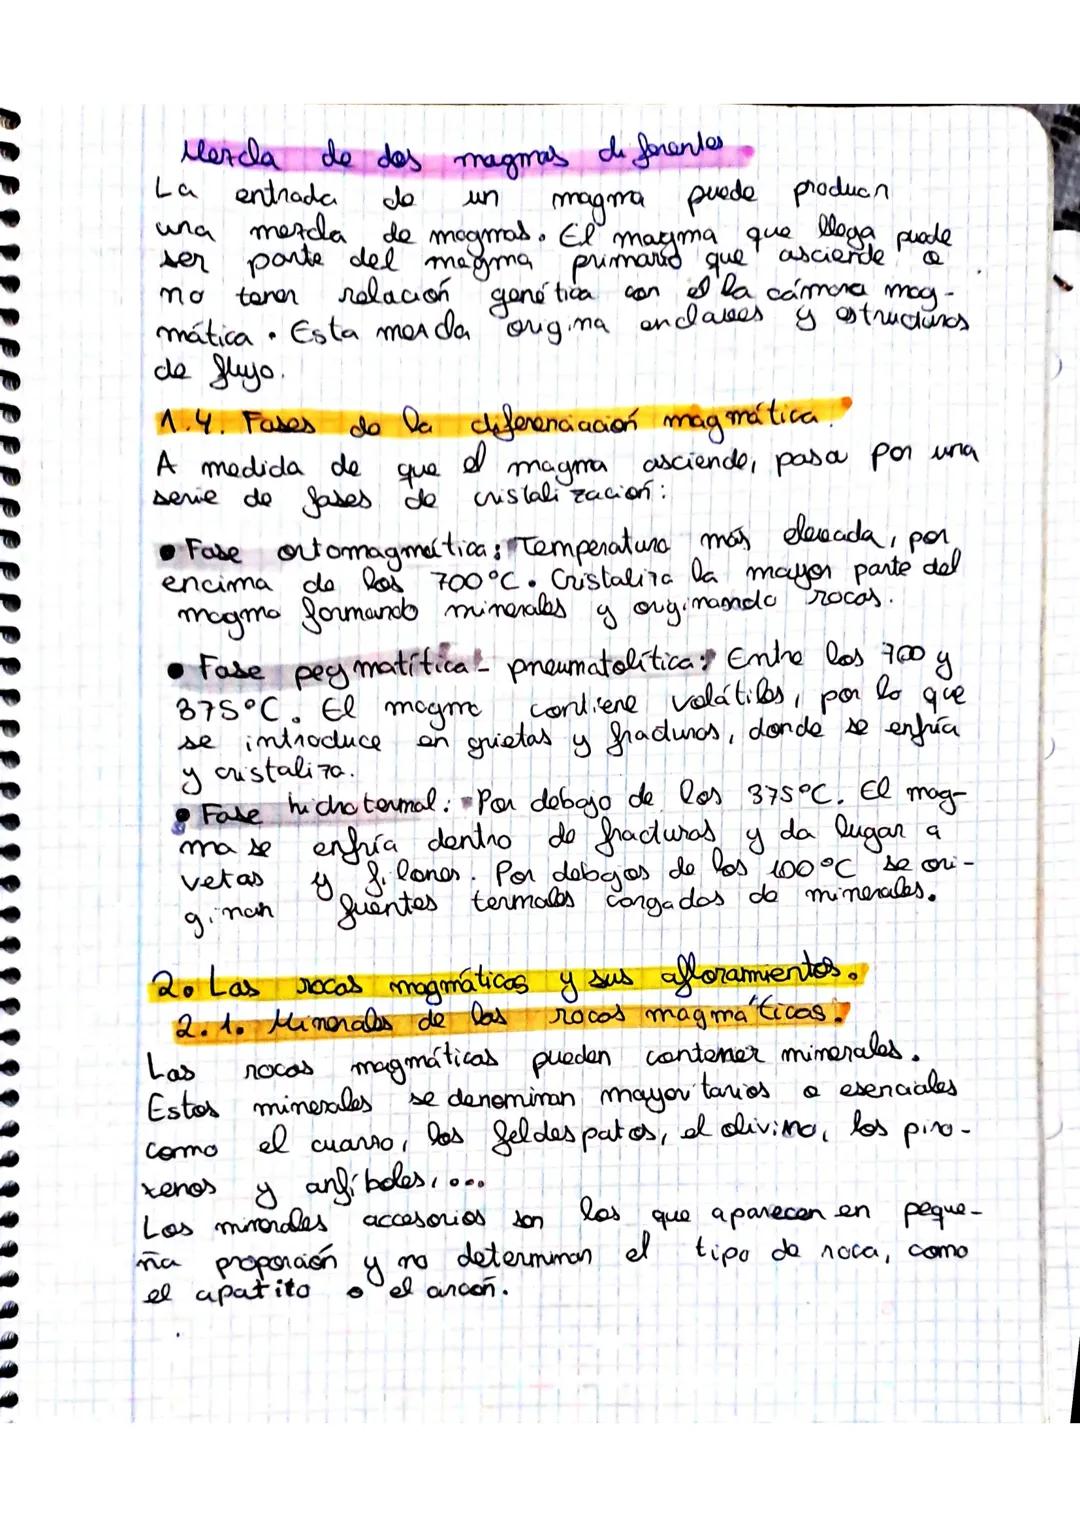 Mezcla de dos magmas diferentes
La entrada de un magma puede producir
una mezcla de magmas. El magma que llega puede
ser parte del magma primario que asciende o
no tener relación genética con el la cámara mag-
mática. Esta mezcla origina enclaves y estructuras
de flujo.
1.4. Fases de la diferenciación magmática.
A medida de que el magma asciende, pasa por una
serie de fases de cristalización:
● Fase ortomagmática: Temperatura más elevada, por
encima de los 700°C. Cristaliza la mayor parte del
magma formando minerales y originando rocas.
● Fase pegmatítica - pneumatolítica: Entre los 700 y
375°C. El magma contiene volátiles, por lo que
se introduce en grietas y fracturas, donde se enfría
y cristaliza.
● Fase hidrotermal: Por debajo de los 375°C. El mag-
ma se enfría dentro de fracturas y da lugar a
vetas y filones. Por debajos de los 100°C se ori-
ginan fuentes termales cargadas de minerales.
2. Las rocas magmáticas y sus afloramientos.
2.1. Minerales de las rocas magmáticas.
Las rocas magmáticas pueden contener minerales.
Estos minerales se denominan mayoritarios o esenciales
como el cuarzo, los feldespatos, el olivino, los piro-
xenos y anfíboles,...
Los minerales accesorios son los que aparecen en peque-
ña proporción y no determinan el tipo de roca, como
el apatito o el circón.